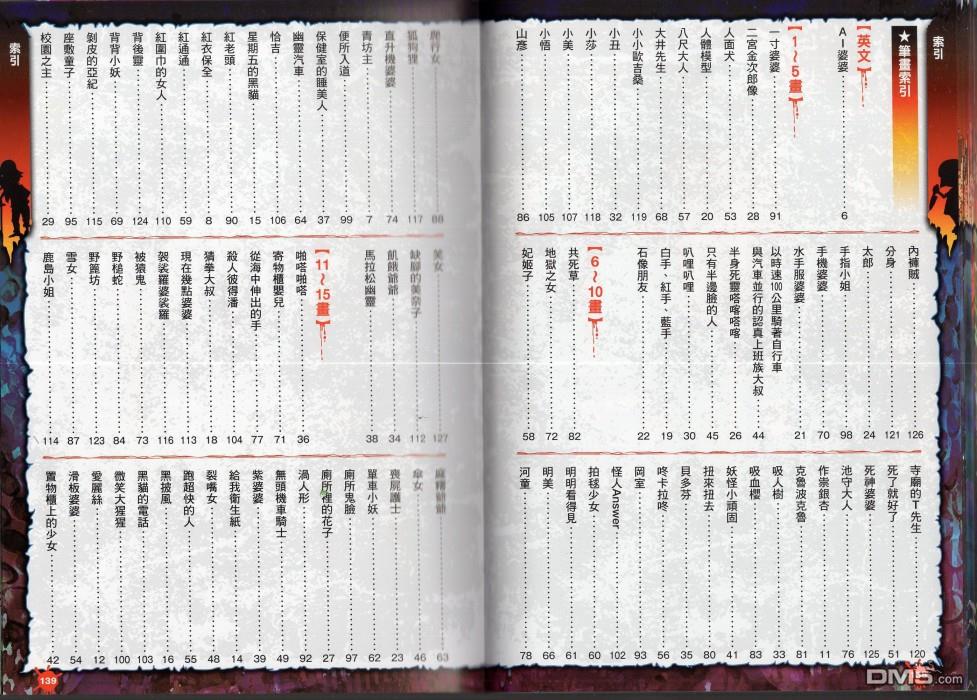 索引
★筆畫索引
【英文】
AI婆婆 6
【1～5畫】
一寸婆婆 91
二宮金次郎像 28
人面犬 53
人體模型 20
八尺大人 57
大井先生 68
小小歐吉桑 119
小丑 32
小莎 118
小美 107
小悟 105
山彥 86
內褲賊 126
分身 121
太郎 24
手指小姐 98
手機婆婆 70
水手服婆婆 21
以時速100公里騎著自行車
與汽車並行的認真上班族大叔 44
半身死靈喀嗒喀嗒 26
只有半邊臉的人 45
叭哩叭哩 30
白手、紅手、藍手 19
石像朋友 22
【6～10畫】
共死草 82
地獄之女 72
妃姬子 58
寺廟的T先生 120
死了就好了 51
死神婆婆 125
池守大人 76
作祟銀杏 11
克魯波克魯 81
吸人樹 33
吸血櫻 83
妖怪小頑固 41
扭來扭去 80
貝多芬 35
咚卡拉咚 56
岡室 93
怪人Answer 102
拍毬少女 60
明明看得見 61
明美 66
河童 78
爬行女 88
狐狗狸 117
直升機婆婆 74
青坊主 7
便所入道 99
保健室的睡美人 37
幽靈汽車 64
恰吉 106
星期五的黑貓 15
紅老頭 90
紅衣保全 8
紅通通 59
紅圍巾的女人 110
背後靈 124
背背小妖 69
剝皮的亞紀 115
座敷童子 95
校園之主 29
笑女 127
缺腳的美奈子 112
飢餓爺爺 34
馬拉松幽靈 38
【11～15畫】
啪嗒啪嗒 36
寄物櫃嬰兒 71
從海中伸出的手 77
殺人彼得潘 104
猜拳大叔 18
現在幾點婆婆 113
袈裟羅婆裟羅 116
被猿鬼 73
野槌蛇 84
野篦坊 123
雪女 87
鹿島小姐 114
麻糬爺爺 63
傘女 46
喪屍護士 23
單車小妖 62
廁所鬼臉 97
廁所裡的花子 27
渦人形 92
無頭機車騎士 49
紫婆婆 39
給我衛生紙 14
裂嘴女 48
跑超快的人 55
黑披風 16
黑貓的電話 103
微笑大猩猩 100
愛麗絲 12
滑板婆婆 54
置物櫃上的少女 42
索引
139
DM5.com